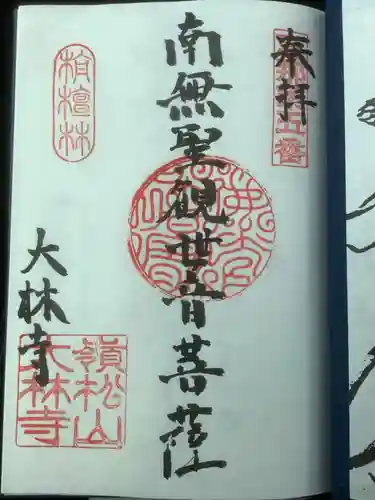 奉拝
南無聖観世音菩薩
大林寺
栴檀林
嶺松山
大林寺